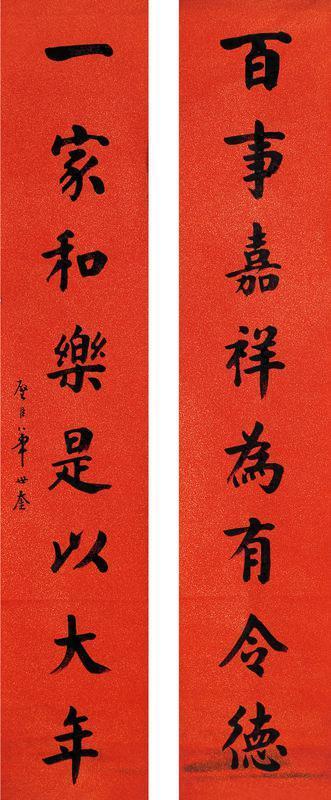 百事嘉祥為有令德
一家和樂是以大年
璧臣華世奎